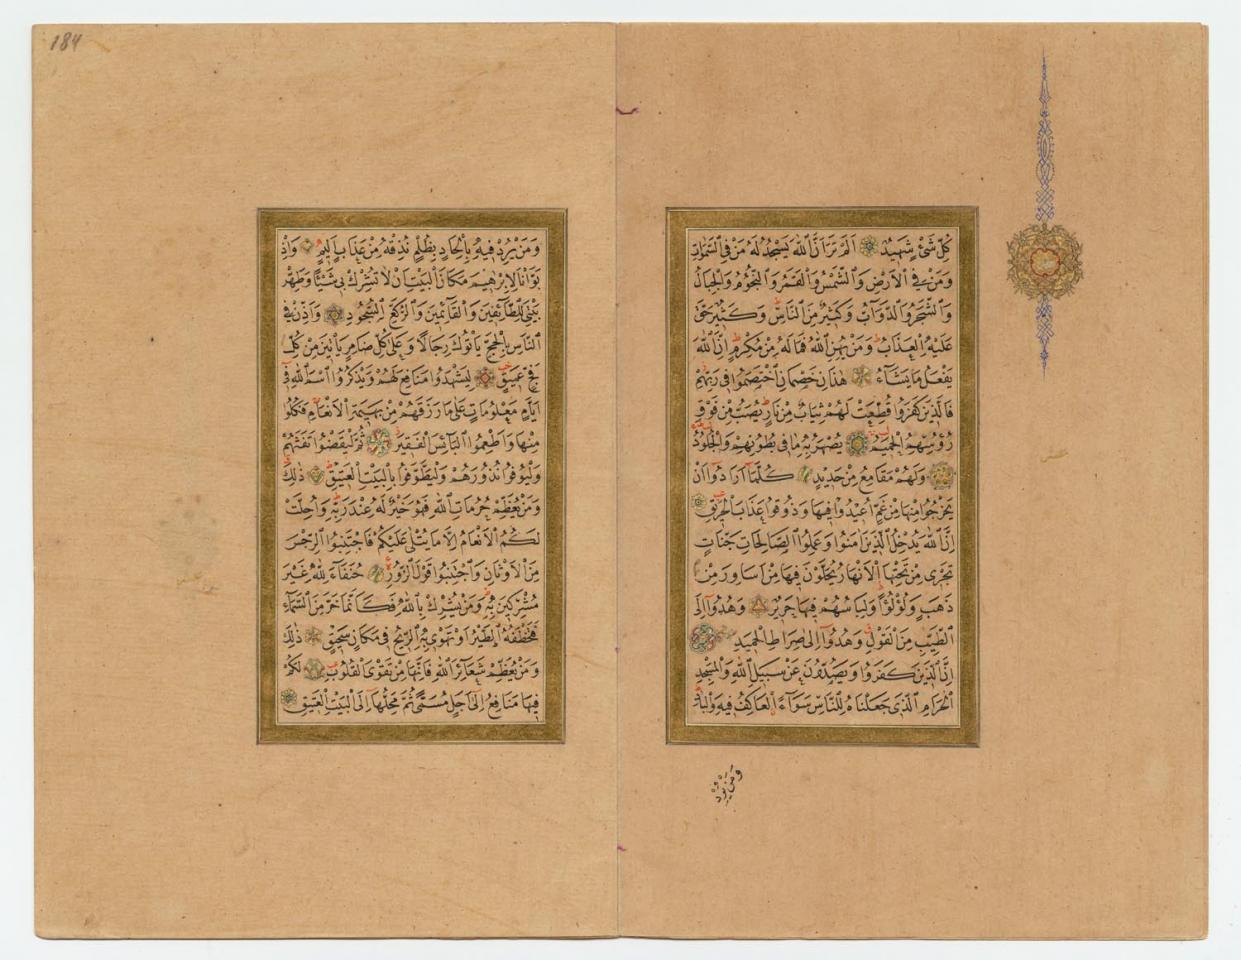 كُلِّ شَئٍ شَهِيدٌ اَلَمْ تَرَ اَنَّ اللّٰهَ يَسْجُدُ لَهُ مَنْ فِي السَّمٰوَاتِ
وَمَنْ فِي الْاَرْضِ وَالشَّمْسُ وَالْقَمَرُ وَالنُّجُومُ وَالْجِبَالُ
وَالشَّجَرُ وَالدَّوَآبُّ وَكَثِيرٌ مِنَ النَّاسِ وَكَثِيرٌ حَقَّ
عَلَيْهِ الْعَذَابُ وَمَنْ يُهِنِ اللّٰهُ فَمَا لَهُ مِنْ مُكْرِمٍ اِنَّ اللّٰهَ
يَفْعَلُ مَا يَشَآءُ هٰذَانِ خَصْمَانِ اخْتَصَمُوا فِي رَبِّهِمْ
فَالَّذِينَ كَفَرُوا قُطِّعَتْ لَهُمْ ثِيَابٌ مِنْ نَارٍ يُصَبُّ مِنْ فَوْقِ
رُؤُسِهِمُ الْحَمِيمُ يُصْهَرُ بِهِ مَا فِي بُطُونِهِمْ وَالْجُلُودُ
وَلَهُمْ مَقَامِعُ مِنْ حَدِيدٍ كُلَّمَا اَرَادُوا اَنْ
يَخْرُجُوا مِنْهَا مِنْ غَمٍّ اُعِيدُوا فِيهَا وَذُوقُوا عَذَابَ الْحَرِيقِ
اِنَّ اللّٰهَ يُدْخِلُ الَّذِينَ اٰمَنُوا وَعَمِلُوا الصَّالِحَاتِ جَنَّاتٍ
تَجْرِي مِنْ تَحْتِهَا الْاَنْهَارُ يُحَلَّوْنَ فِيهَا مِنْ اَسَاوِرَ مِنْ
ذَهَبٍ وَلُؤْلُؤًا وَلِبَاسُهُمْ فِيهَا حَرِيرٌ وَهُدُوا اِلَى
الطَّيِّبِ مِنَ الْقَوْلِ وَهُدُوا اِلٰى صِرَاطِ الْحَمِيدِ
اِنَّ الَّذِينَ كَفَرُوا وَيَصُدُّونَ عَنْ سَبِيلِ اللّٰهِ وَالْمَسْجِدِ
الْحَرَامِ الَّذِي جَعَلْنَاهُ لِلنَّاسِ سَوَآءً الْعَاكِفُ فِيهِ وَالْبَادِ
وَمَنْ يُرِدْ
184
وَمَنْ يُرِدْ فِيهِ بِاِلْحَادٍ بِظُلْمٍ نُذِقْهُ مِنْ عَذَابٍ اَلِيمٍ وَاِذْ
بَوَّاْنَا لِاِبْرٰهِيمَ مَكَانَ الْبَيْتِ اَنْ لَا تُشْرِكْ بِي شَيْئًا وَطَهِّرْ
بَيْتِيَ لِلطَّآئِفِينَ وَالْقَآئِمِينَ وَالرُّكَّعِ السُّجُودِ وَاَذِّنْ فِي
النَّاسِ بِالْحَجِّ يَاْتُوكَ رِجَالًا وَعَلٰى كُلِّ ضَامِرٍ يَاْتِينَ مِنْ كُلِّ
فَجٍّ عَمِيقٍ لِيَشْهَدُوا مَنَافِعَ لَهُمْ وَيَذْكُرُوا اسْمَ اللّٰهِ فِي
اَيَّامٍ مَعْلُومَاتٍ عَلٰى مَا رَزَقَهُمْ مِنْ بَهِيمَةِ الْاَنْعَامِ فَكُلُوا
مِنْهَا وَاَطْعِمُوا الْبَآئِسَ الْفَقِيرَ ثُمَّ لْيَقْضُوا تَفَثَهُمْ
وَلْيُوفُوا نُذُورَهُمْ وَلْيَطَّوَّفُوا بِالْبَيْتِ الْعَتِيقِ ذٰلِكَ
وَمَنْ يُعَظِّمْ حُرُمَاتِ اللّٰهِ فَهُوَ خَيْرٌ لَهُ عِنْدَ رَبِّهِ وَاُحِلَّتْ
لَكُمُ الْاَنْعَامُ اِلَّا مَا يُتْلٰى عَلَيْكُمْ فَاجْتَنِبُوا الرِّجْسَ
مِنَ الْاَوْثَانِ وَاجْتَنِبُوا قَوْلَ الزُّورِ حُنَفَآءَ لِلّٰهِ غَيْرَ
مُشْرِكِينَ بِهِ وَمَنْ يُشْرِكْ بِاللّٰهِ فَكَاَنَّمَا خَرَّ مِنَ السَّمَآءِ
فَتَخْطَفُهُ الطَّيْرُ اَوْ تَهْوِي بِهِ الرِّيحُ فِي مَكَانٍ سَحِيقٍ ذٰلِكَ
وَمَنْ يُعَظِّمْ شَعَآئِرَ اللّٰهِ فَاِنَّهَا مِنْ تَقْوَى الْقُلُوبِ لَكُمْ
فِيهَا مَنَافِعُ اِلٰى اَجَلٍ مُسَمًّى ثُمَّ مَحِلُّهَا اِلَى الْبَيْتِ الْعَتِيقِ